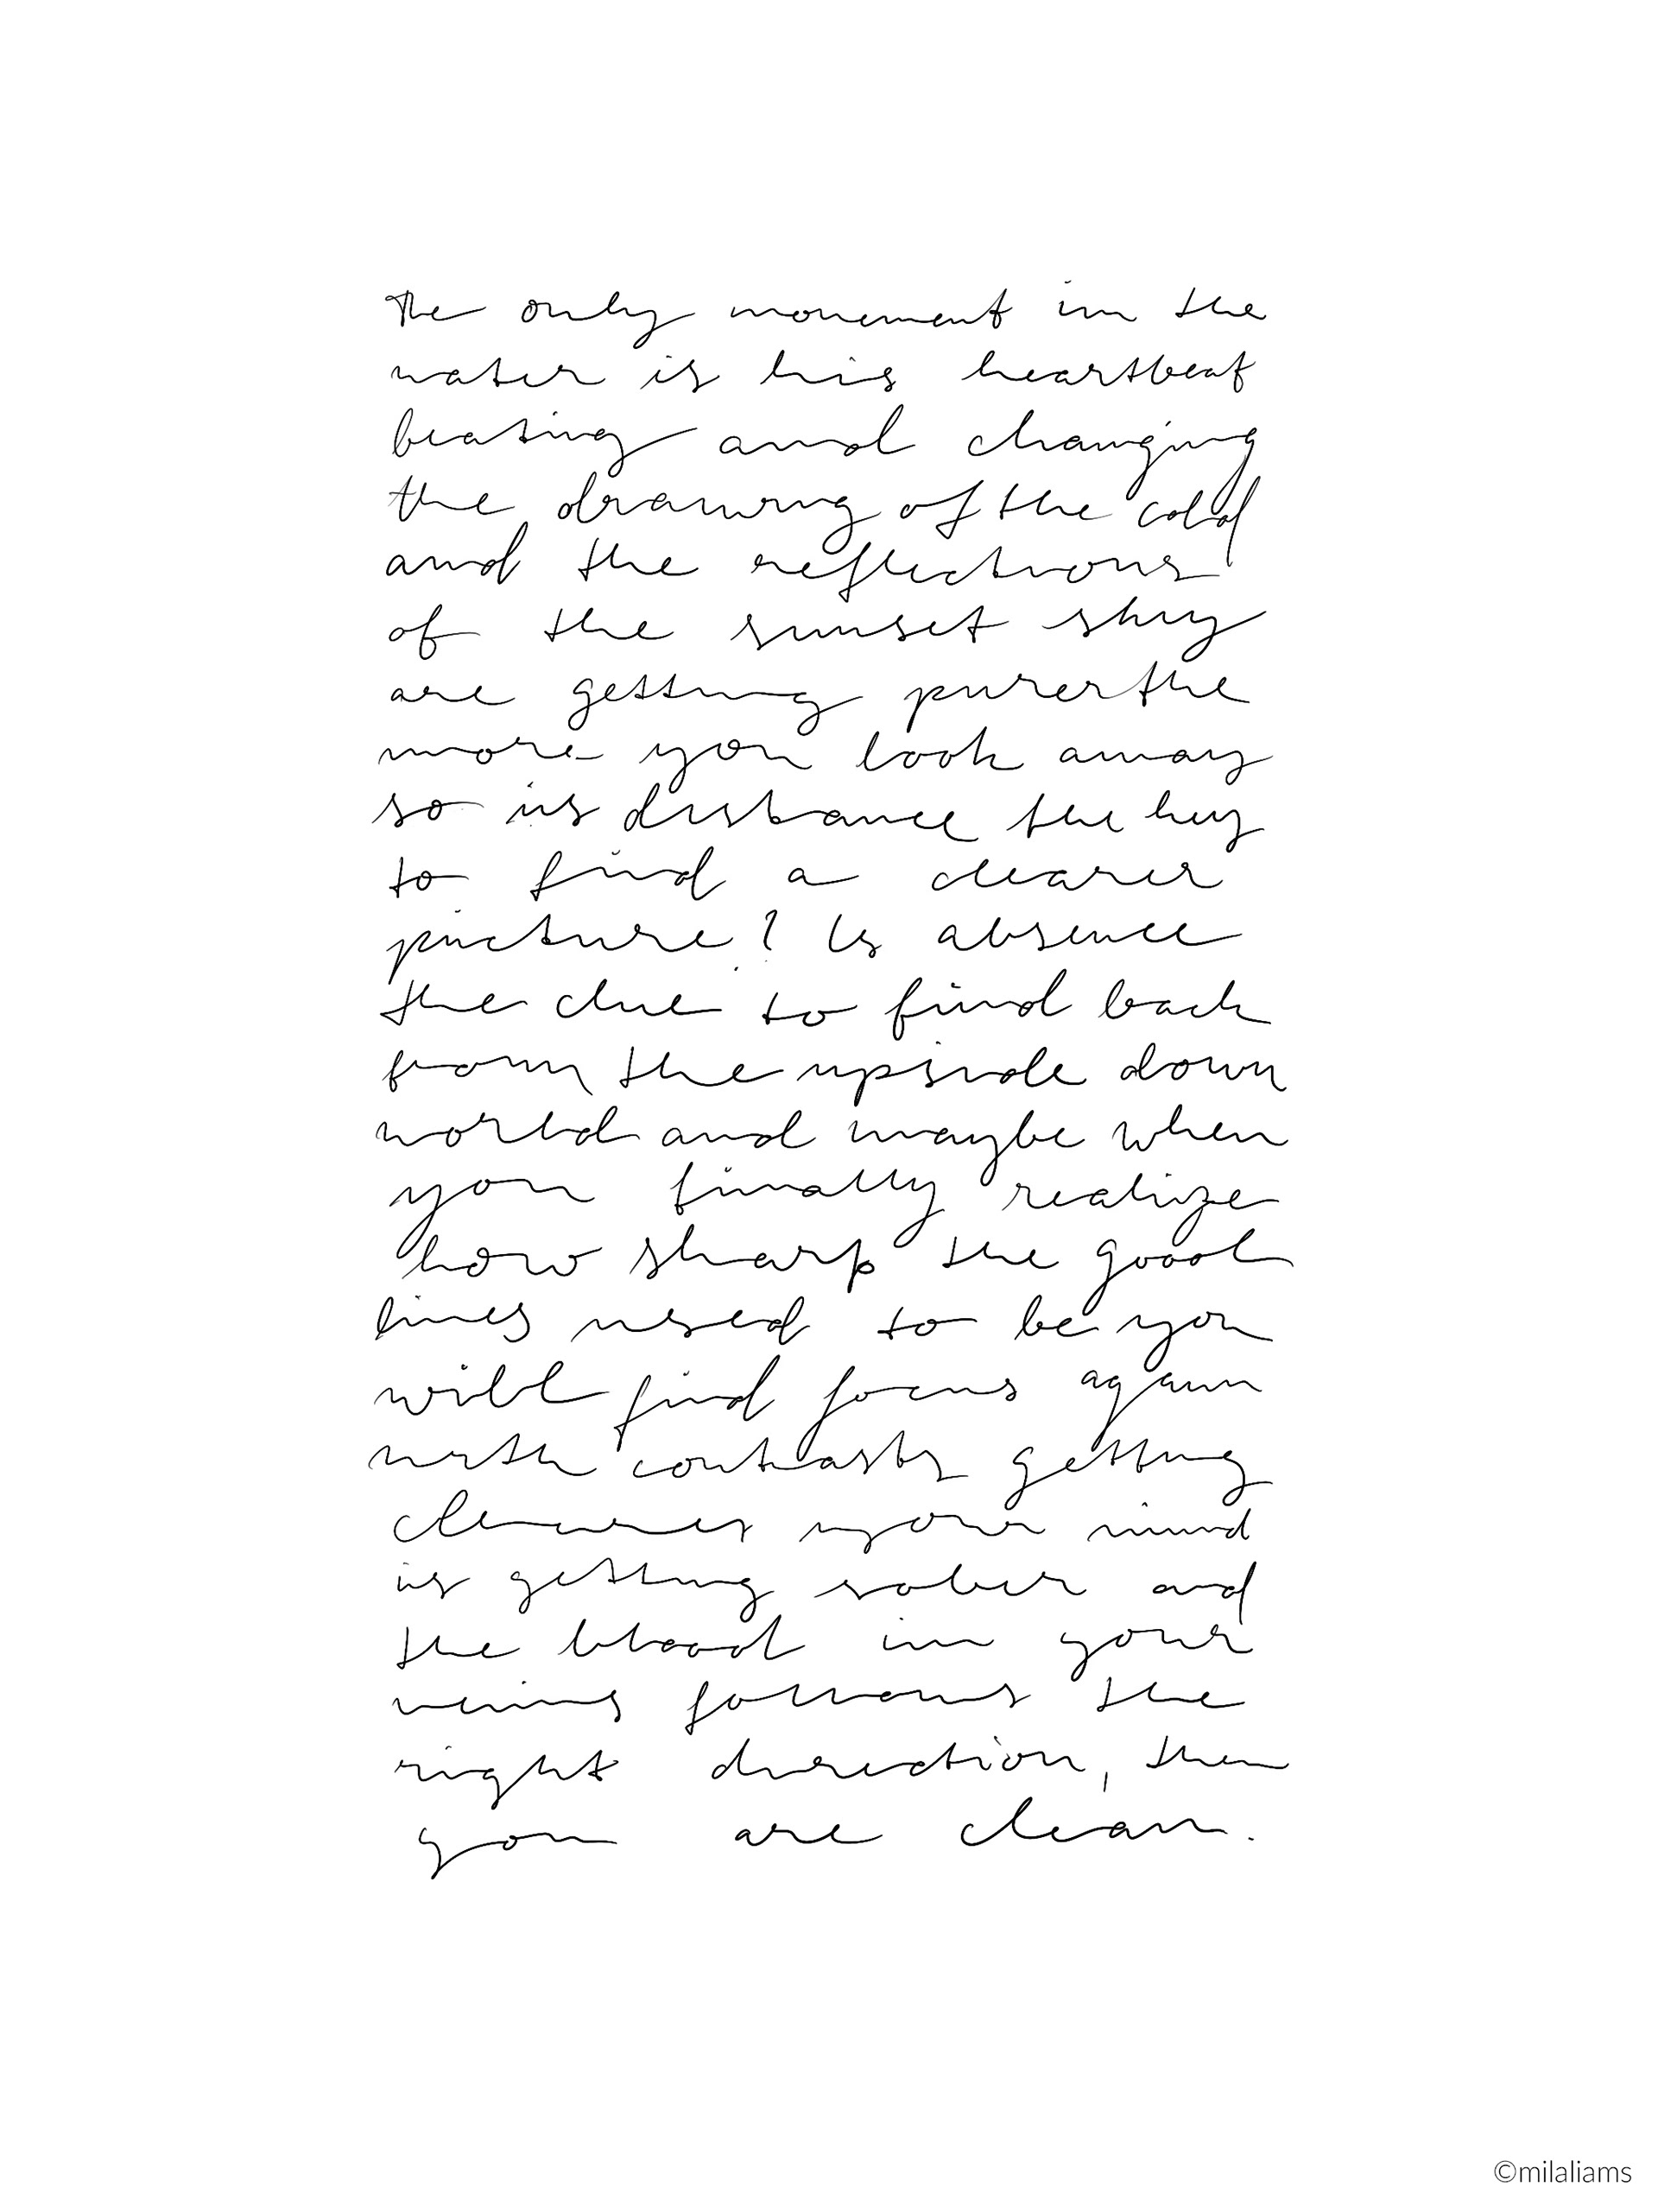 The only movement in the
water is his heartbeat
beating and changing
the drawing of the cold
and the reflections
of the sunset sky
are getting purer the
more you look away
so is distance the key
to find a clearer
picture? Is absence
the clue to find back
from the upside down
world and maybe when
you finally realize
how sharp the good
lines used to be you
will find focus again
with contrasts getting
cleaner your mind
is getting sober and
the blood in your
veins follows the
right direction, then
you are clean.
©milaliams